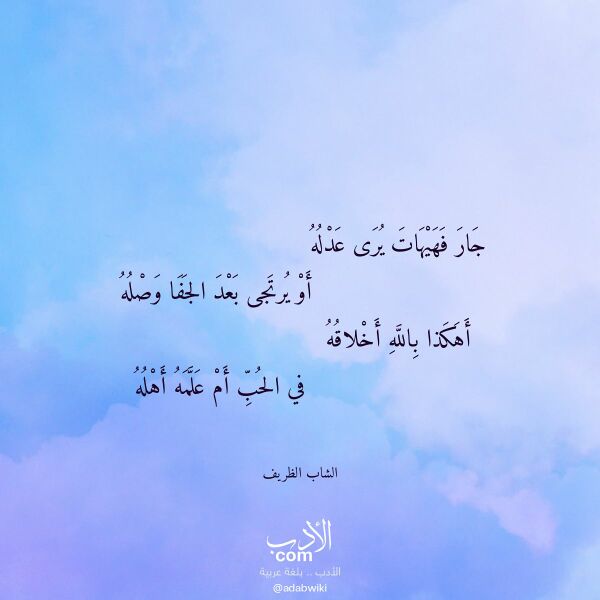 جَارَ فَهَيْهَاتَ يُرَى عَدْلُهُ
أَوْ يُرتَجى بَعْدَ الجَفَا وَصْلُهُ
أَهَكَذا بِاللَّهِ أَخْلاقُهُ
في الحُبِّ أَمْ عَلَّمَهُ أَهْلُهُ
الشاب الظريف
الأدب
com
الأدب .. بلغة عربية
@adabwiki